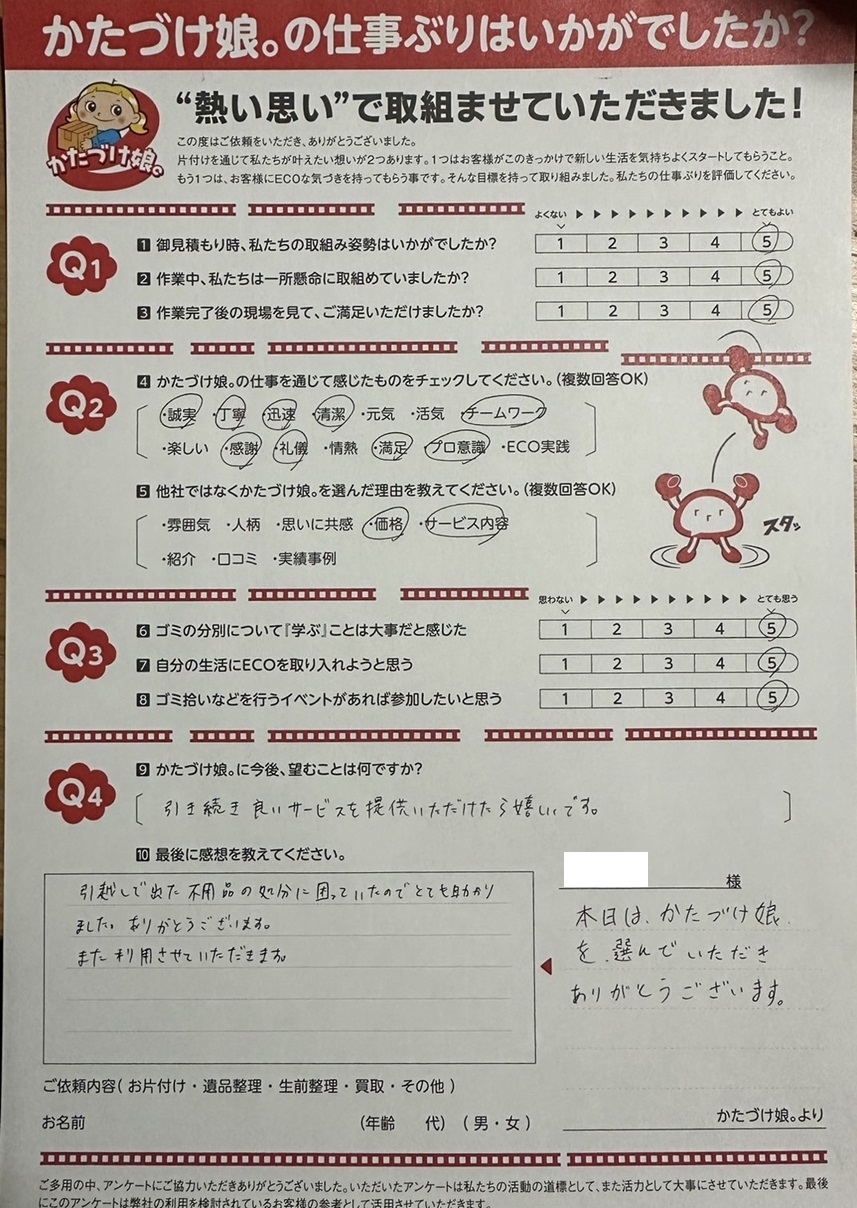 かたづけ娘。の仕事ぶりはいかがでしたか?
かたづけ娘。
“熱い思い”で取組ませていただきました!
この度はご依頼をいただき、ありがとうございました。
片付けを通じて私たちが叶えたい想いが2つあります。1つはお客様がこのきっかけで新しい生活を気持ちよくスタートしてもらうこと。
もう1つは、お客様にECOな気づきを持ってもらう事です。そんな目標を持って取り組みました。私たちの仕事ぶりを評価してください。
よくない ▶ ▶ ▶ ▶ ▶ ▶ ▶ ▶ ▶ ▶ とてもよい
Q1
1 御見積もり時、私たちの取組み姿勢はいかがでしたか? 1 2 3 4 5
2 作業中、私たちは一所懸命に取組めていましたか? 1 2 3 4 5
3 作業完了後の現場を見て、ご満足いただけましたか? 1 2 3 4 5
Q2
4 かたづけ娘。の仕事を通じて感じたものをチェックしてください。(複数回答OK)
・誠実 ・丁寧 ・迅速 ・清潔 ・元気 ・活気 ・チームワーク
・楽しい ・感謝 ・礼儀 ・情熱 ・満足 ・プロ意識 ・ECO実践
5 他社ではなくかたづけ娘。を選んだ理由を教えてください。(複数回答OK)
・雰囲気 ・人柄 ・思いに共感 ・価格 ・サービス内容
・紹介 ・口コミ ・実績事例
スタッ
思わない ▶ ▶ ▶ ▶ ▶ ▶ ▶ ▶ ▶ ▶ とても思う
Q3
6 ゴミの分別について『学ぶ』ことは大事だと感じた 1 2 3 4 5
7 自分の生活にECOを取り入れようと思う 1 2 3 4 5
8 ゴミ拾いなどを行うイベントがあれば参加したいと思う 1 2 3 4 5
Q4
9 かたづけ娘。に今後、望むことは何ですか?
引き続き良いサービスを提供いただけたら嬉しいです。
10 最後に感想を教えてください。
引越しで出た不用品の処分に困っていたのでとても助かり
ました。ありがとうございます。
また利用させていただきます。
様
本日は、かたづけ娘
を選んでいただき
ありがとうございます。
かたづけ娘。より
ご依頼内容( お片付け・遺品整理・生前整理・買取・その他 )
お名前 (年齢 代) ( 男・女 )
ご多用の中、アンケートにご協力いただきありがとうございました。いただいたアンケートは私たちの活動の道標として、また活力として大事にさせていただきます。最後
にこのアンケートは弊社の利用を検討されているお客様の参考として活用させていただきます。